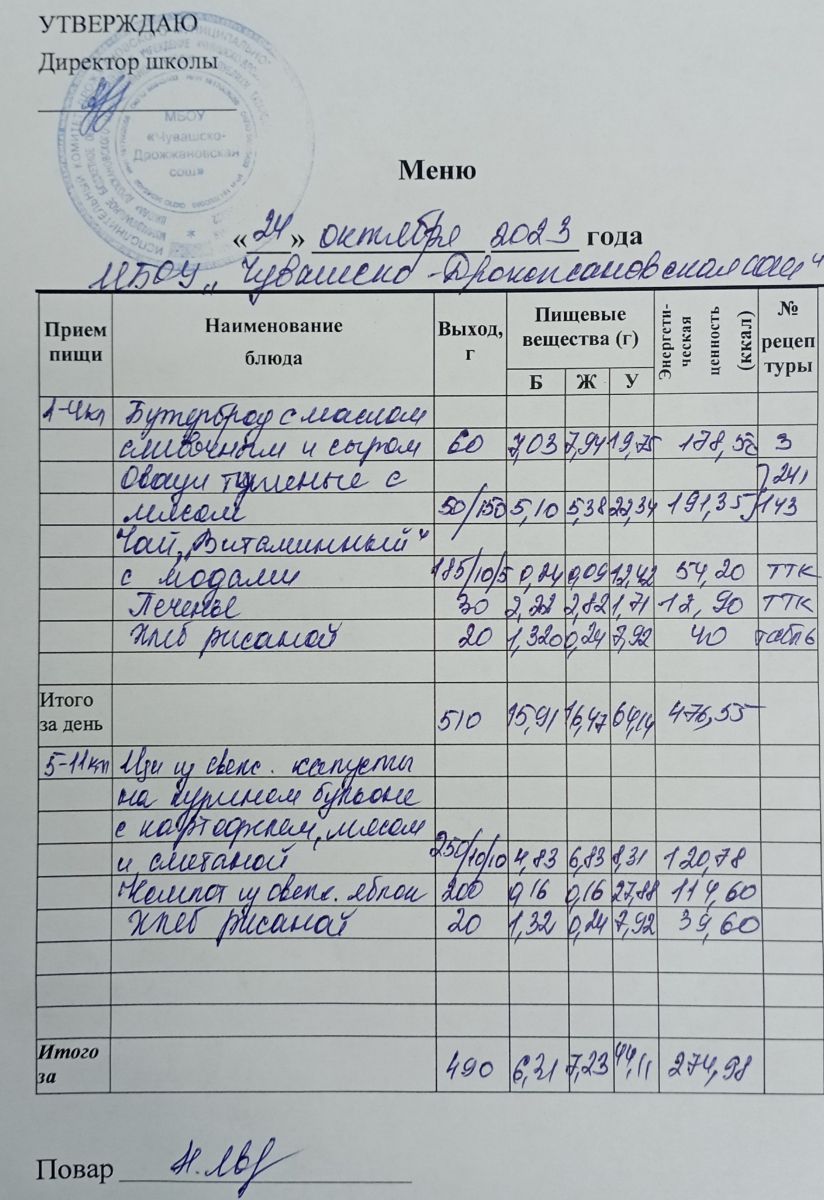 УТВЕРЖДАЮ
Директор школы
МБОУ
«Чувашско-
Дрожжановская
сош»
Меню
«24» октября 2023 года
МБОУ „Чувашско-Дрожжановская сош“
Прием пищи Наименование блюда Выход, г Пищевые вещества (г) Б Ж У Энергетическая ценность (ккал) № рецептуры
1-4кл Бутерброд с маслом
сливочным и сыром 60 7,03 7,94 19,75 178,52 3
Овощи тушеные с 241
мясом 50/150 5,10 5,38 22,34 191,35 143
Чай „Витаминный“
с ягодами 185/10/5 0,24 0,09 12,42 54,20 ТТК
Печенье 30 2,22 2,82 1,71 12,90 ТТК
Хлеб ржаной 20 1,320 0,24 7,92 40 табл 6
Итого за день 510 15,91 16,47 64,14 476,55
5-11кл Щи из свеж. капусты
на курином бульоне
с картофелем, мясом
и сметаной 250/10/10 4,83 6,83 8,31 120,78
Компот из свеж. яблок 200 0,16 0,16 27,88 114,60
Хлеб ржаной 20 1,32 0,24 7,92 39,60
Итого за 490 6,31 7,23 44,11 274,98
Повар